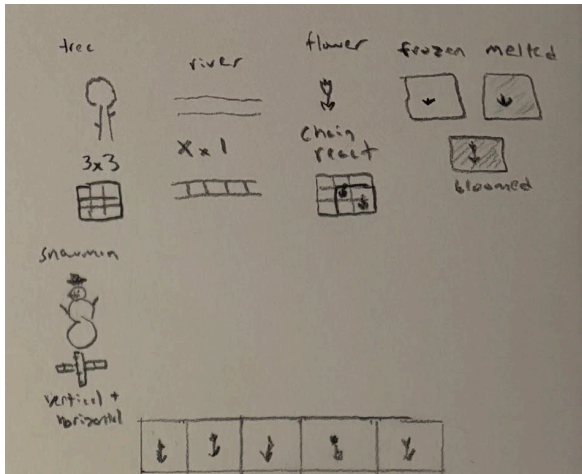 tree
river
flower
frozen melted
3x3
X x 1
chain
react
bloomed
snowman
vertical +
horizontal